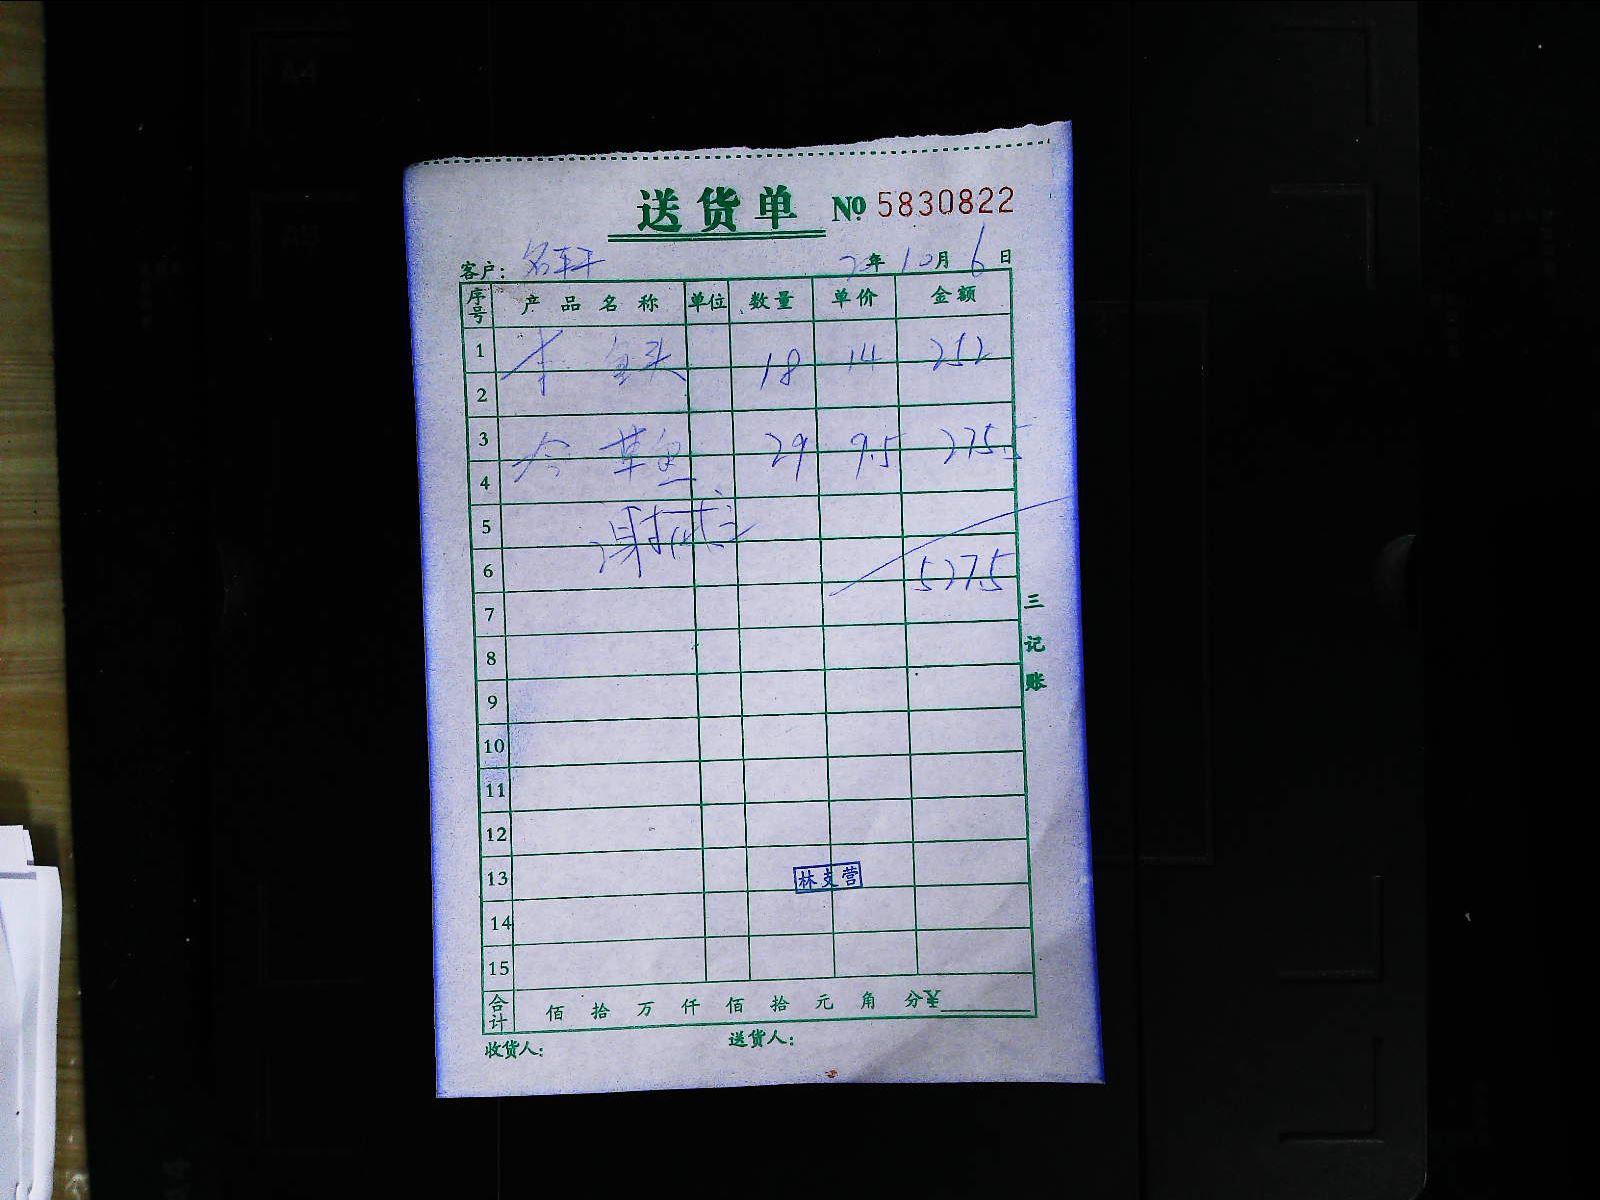 送货单 № 5830822
客户: 名轩 20年10月6日
序号 产品名称 单位 数量 单价 金额
1 鱼头 18 14 252
2
3 草鱼 29 9.5 275.5
4
5
6 527.5
7
8
9
10
11
12
13 林支营
14
15
合计 佰 拾 万 仟 佰 拾 元 角 分 ¥
收货人: 送货人:
三记账